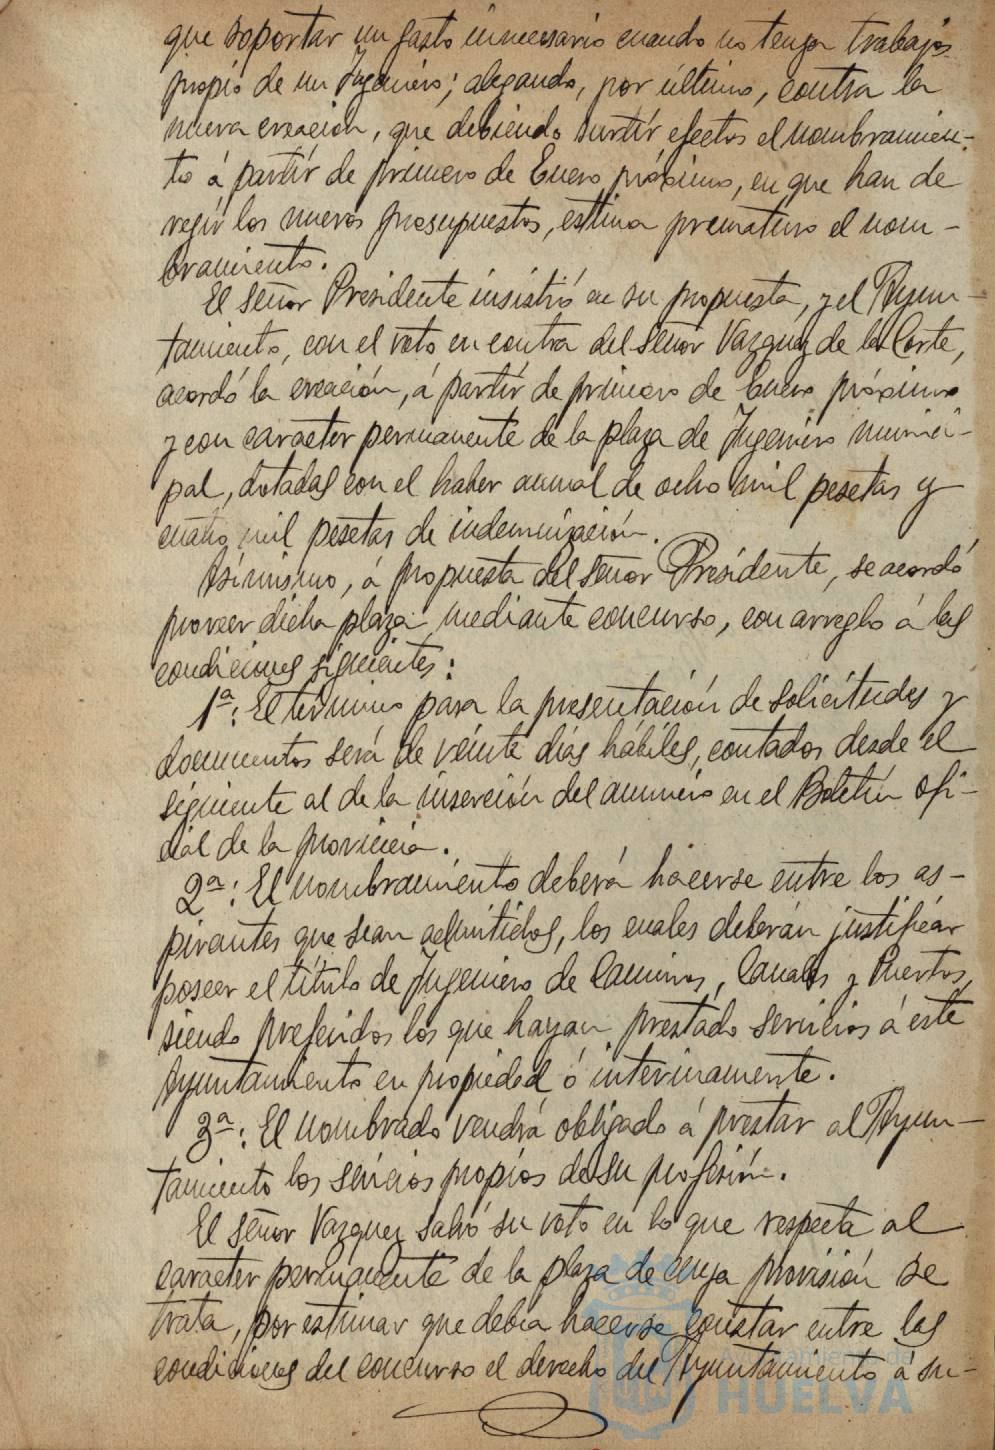 que soportar un gasto innecesario cuando no tenga trabajos
propio de un Ingeniero; alegando, por último, contra la
nueva creación, que debiendo surtir efectos el nombramien-
to á partir de primero de Enero próximo, en que han de
regir los nuevos presupuestos, estima prematuro el nom-
bramiento.
El señor Presidente insistió en su propuesta, y el Ayun-
tamiento, con el voto en contra del señor Vazquez de la Corte,
acordó la creación, á partir de primero de Enero próximo
y con caracter permanente de la plaza de Ingeniero munici-
pal, dotadas con el haber anual de ocho mil pesetas y
cuatro mil pesetas de indemnización.
Asimismo, á propuesta del señor Presidente, se acordó
proveer dicha plaza mediante concurso, con arreglo á las
condiciones siguientes:
1ª: El término para la presentación de solicitudes y
documentos será de veinte dias hábiles, contados desde el
siguiente al de la inserción del anuncio en el Boletín ofi-
cial de la provincia.
2ª: El nombramiento deberá hacerse entre los as-
pirantes que sean admitidos, los cuales deberán justificar
poseer el título de Ingeniero de Caminos, Canales y Puertos,
siendo preferidos los que hayan prestado servicios á este
Ayuntamiento en propiedad ó interinamente.
3ª: El nombrado vendrá obligado á prestar al Ayun-
tamiento los sericios propios de su profesión.
El señor Vazquez salvó su voto en lo que respecta al
caracter permanente de la plaza de cuya provisión se
trata, por estimar que debia hacerse constar entre las
condiciones del concurso el derecho del Ayuntamiento á su-
Ayuntamiento de
HUELVA